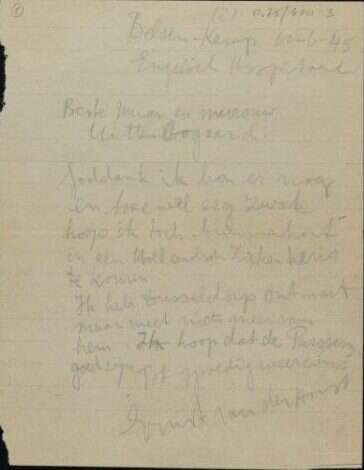 (2) 0.25/600-3
Belsen-Kamp 60-6-45
Engelsch Hospitaal
Beste heer en mevrouw
Uittenboogaard!
Goddank ik ben er nog
en hoewel erg zwak
hoop ik toch binnenkort
in een Hollandsch Ziekenhuis
te komen
Ik heb ontmoet
maar weet niets meer van
hem. Ik hoop dat de
goed zijn Tot spoedig weerziens
Ernst van der Horst